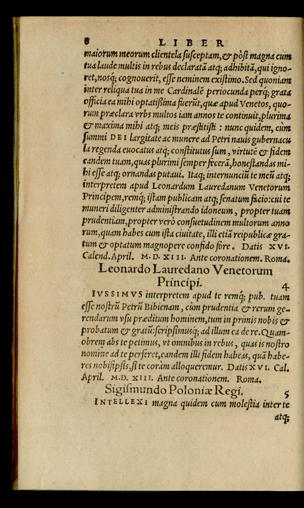 8 LIBER
maiorum meorum clientela susceptam, & pòst magna cum
tua laude multis in rebus declaratã atq; adhibitã, qui igno-
ret, nosq; cognouerit, esse neminem existimo. Sed quoniam
inter reliqua tua in me Cardinalẽ periocunda perq; grata
officia ea mihi optatissima fuerũt, quæ apud Venetos, quo-
rum præclara vrbs multos iam annos te continuit, plurima
& maxima mihi atq; meis præstitisti: nunc quidem, cùm
summi DEI largitate ac munere ad Petri nauis gubernacu
la regenda euocatus atq; constitutus sum, virtutẽ & fidem
eandem tuam, quas plurimi semper fecerã, honestandas mi-
hi esse atq; ornandas putaui. Itaq; internunciũ te meũ atq;
interpretem apud Leonardum Lauredanum Venetorum
Principem, remq; istam publicam atq; senatum facio: cui te
muneri diligenter administrando idoneum, propter tuam
prudentiam, propter verò consuetudinem multorum anno
rum, quam habes cum ista ciuitate, illi etiã reipublicæ gra-
tum & optatum magnopere confido fore. Datis XVI.
Calend. April. M. D. XIII. Ante coronationem. Roma.
Leonardo Lauredano Venetorum
Principi. 4
IVSSIMVS interpretem apud te remq; pub. tuam
esse nostrũ Petrũ Bibienam, cùm prudentia & rerum ge-
rendarum vsu præditum hominem, tum in primis nobis &
probatum & gratũ: scripsimusq; ad illum ea de re. Quam-
obrem abs te petimus, vt omnibus in rebus, quas is nostro
nomine ad te perferet, eandem illi fidem habeas, quã habe-
res nobisipsis, si te coràm alloqueremur. Datis XVI. Cal.
April. M. D. XIII. Ante coronationem. Roma.
Sigismundo Poloniæ Regi. 5
INTELLEXI magna quidem cum molestia inter te
atq;